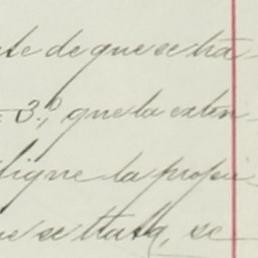 te de que se tra-
3.º, que la exten-
ligne la propie
ue se trata, se